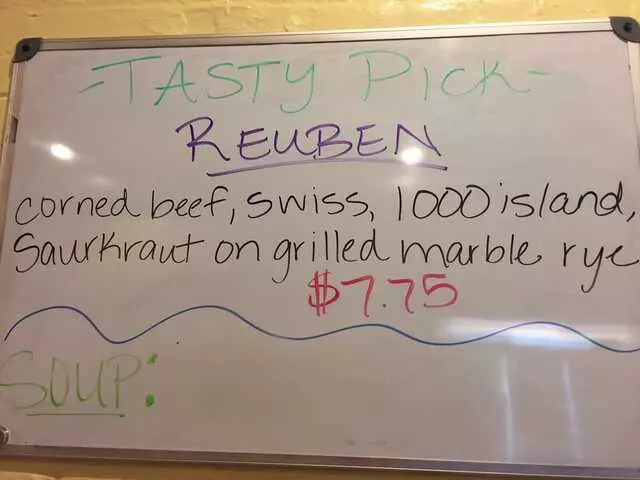 -TASTY PICK-
REUBEN
corned beef, swiss, 1000 island,
Saurkraut on grilled marble rye
$7.75
SOUP: